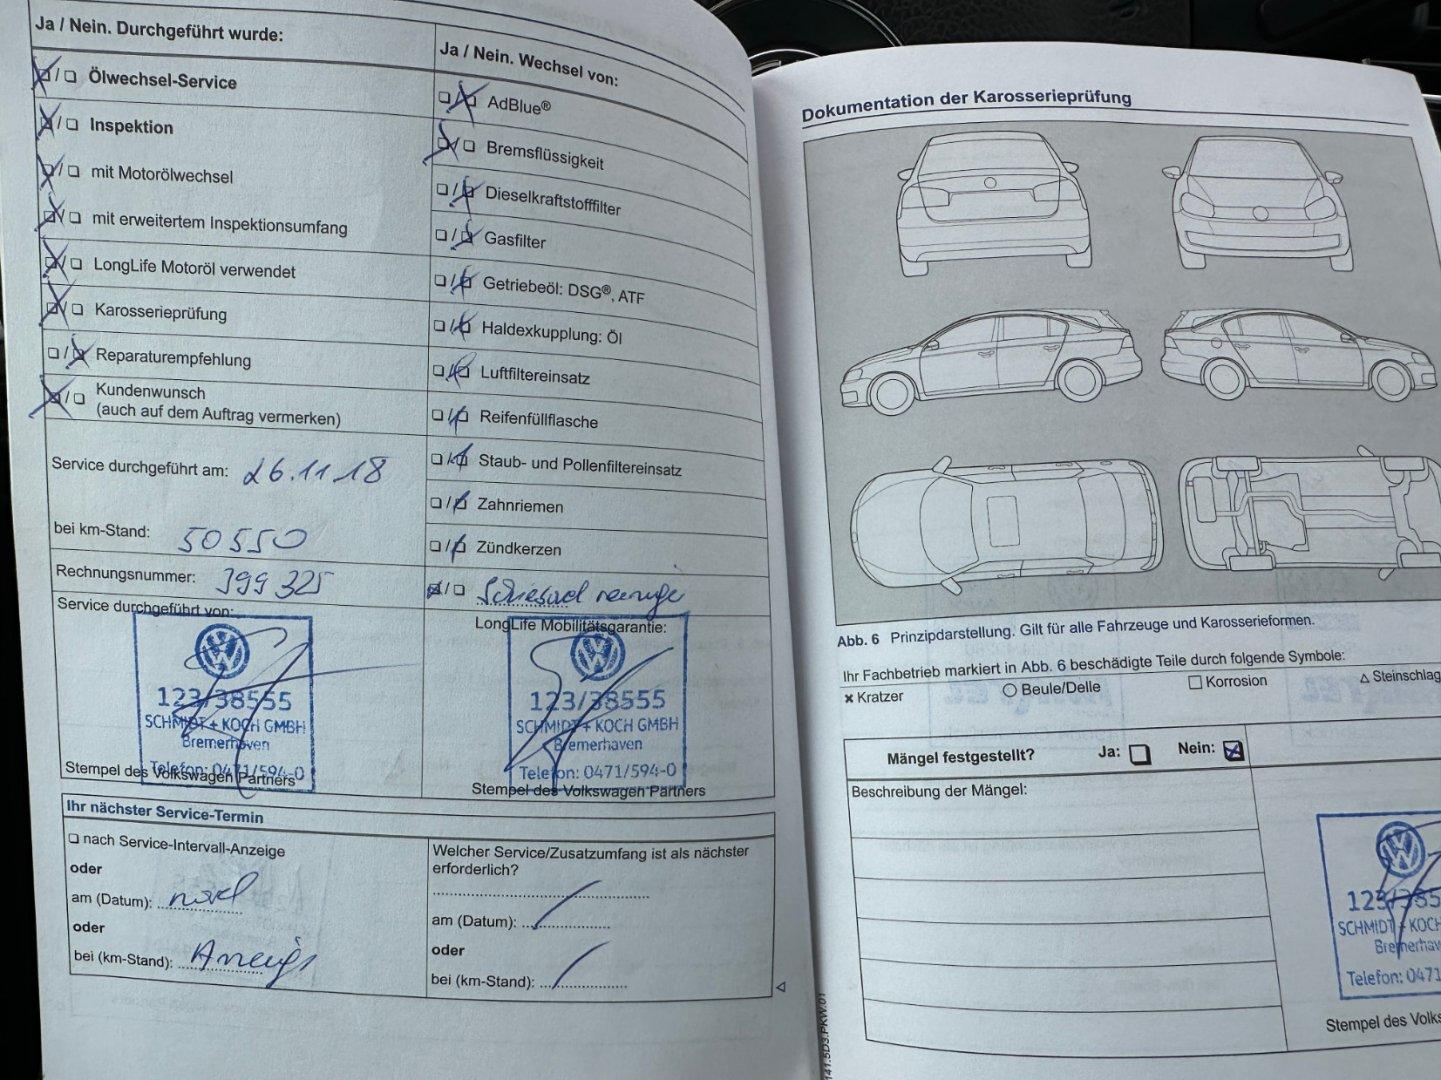 Ja / Nein. Durchgeführt wurde:
❏/❏ Ölwechsel-Service
❏/❏ Inspektion
❏/❏ mit Motorölwechsel
❏/❏ mit erweitertem Inspektionsumfang
❏/❏ LongLife Motoröl verwendet
❏/❏ Karosserieprüfung
❏/❏ Reparaturempfehlung
❏/❏ Kundenwunsch
(auch auf dem Auftrag vermerken)
Service durchgeführt am: 26.11.18
bei km-Stand: 50550
Rechnungsnummer: 399325
Service durchgeführt von:
123/38555
SCHMIDT + KOCH GMBH
Bremerhaven
Telefon: 0471/594-0
Stempel des Volkswagen Partners
Ja / Nein. Wechsel von:
❏/❏ AdBlue®
❏/❏ Bremsflüssigkeit
❏/❏ Dieselkraftstofffilter
❏/❏ Gasfilter
❏/❏ Getriebeöl: DSG®, ATF
❏/❏ Haldexkupplung: Öl
❏/❏ Luftfiltereinsatz
❏/❏ Reifenfüllflasche
❏/❏ Staub- und Pollenfiltereinsatz
❏/❏ Zahnriemen
❏/❏ Zündkerzen
❏/❏
LongLife Mobilitätsgarantie:
123/38555
SCHMIDT + KOCH GMBH
Bremerhaven
Telefon: 0471/594-0
Stempel des Volkswagen Partners
Ihr nächster Service-Termin
❏ nach Service-Intervall-Anzeige
oder
am (Datum): nach
oder
bei (km-Stand): Anzeige
Welcher Service/Zusatzumfang ist als nächster
erforderlich?
am (Datum):
oder
bei (km-Stand):
Dokumentation der Karosserieprüfung
Abb. 6 Prinzipdarstellung. Gilt für alle Fahrzeuge und Karosserieformen.
Ihr Fachbetrieb markiert in Abb. 6 beschädigte Teile durch folgende Symbole:
✖ Kratzer ○ Beule/Delle □ Korrosion △ Steinschlag
Mängel festgestellt? Ja: ❏ Nein: ❏
Beschreibung der Mängel:
123/385
SCHMIDT + KOC
Bremerhav
Telefon: 0471
Stempel des Volks
141.5D3.PKW.01